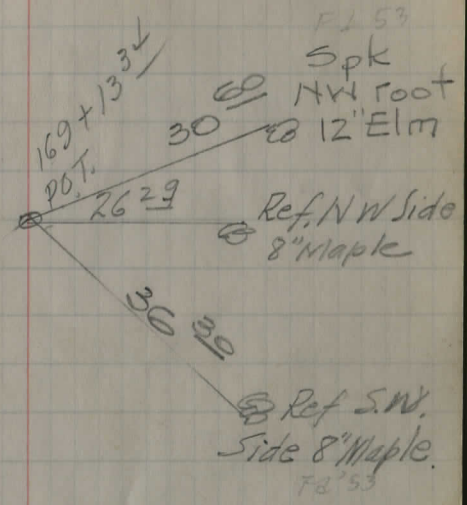 169+13 34
P.O.T.
30 60
Spk
NW root
12" Elm
26 29
Ref. NW Side
8" Maple
36 30
Ref S.W.
Side 8" Maple.